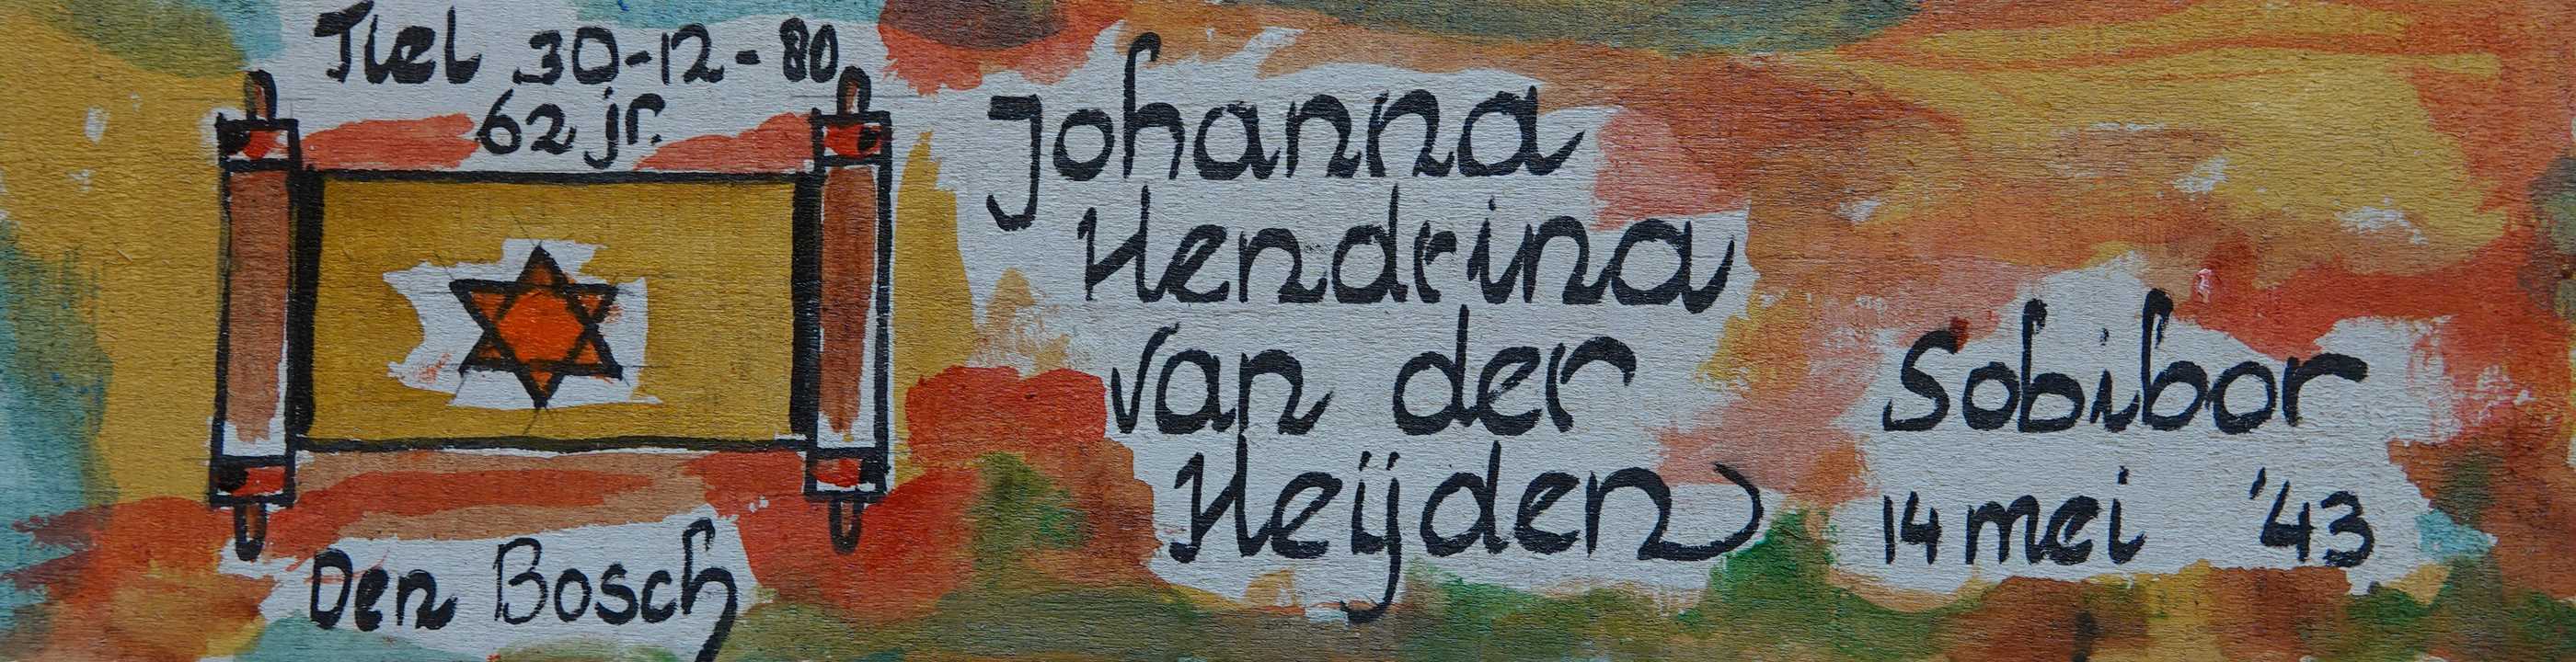 Tiel 30-12-80
62 jr.
Den Bosch
Johanna
Hendrina
van der
Heijden
Sobibor
14 mei '43